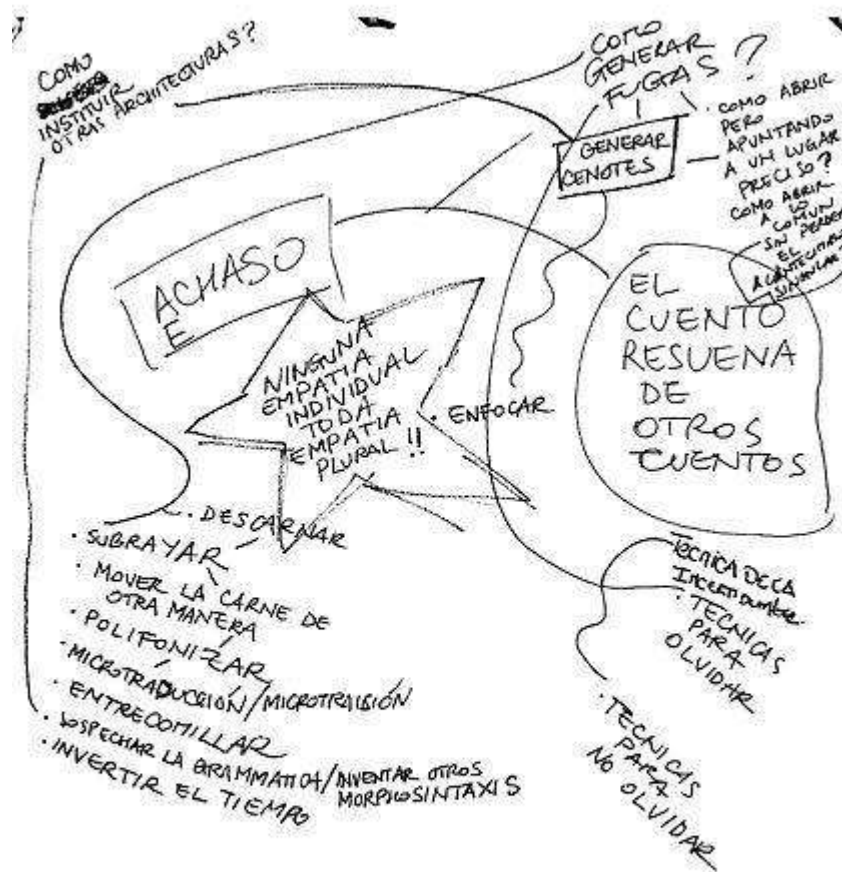 COMO
INSTITUIR
OTRAS ARCHITECTURAS?
COMO
GENERAR
FUGAS?
GENERAR
CENOTES
· COMO ABRIR
PERO
APUNTANDO
A UN LUGAR
PRECISO?
COMO ABRIR
A LO
COMUN
SIN PERDER
EL
SINGULAR
ACHASO
E
NINGUNA
EMPATIA
INDIVIDUAL
TODA
EMPATIA
PLURAL!!
· ENFOCAR
EL
CUENTO
RESUENA
DE
OTROS
CUENTOS
· DESCARNAR
· SUBRAYAR
· MOVER LA CARNE DE
OTRA MANERA
· POLIFONIZAR
· MICROTRADUCCIÓN/MICROTRAICIÓN
· ENTRECOMILLAR
· SOSPECHAR LA GRAMMATICA/INVENTAR OTROS
MORPHOSINTAXIS
· INVERTIR EL TIEMPO
TECNICA DE LA
· TECNICAS
PARA
OLVIDAR
· TECNICAS
PARA
NO OLVIDAR